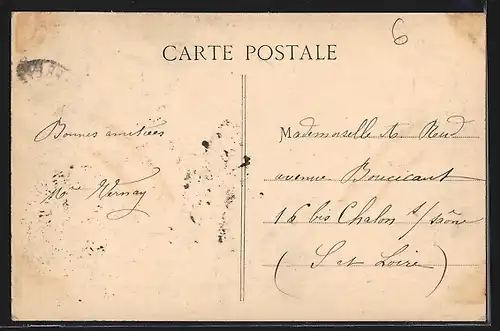 6
CARTE POSTALE
Bonnes amitiées
Vernay
Mademoiselle A.
avenue Boucicaut
16 bis Chalon s/saône
(S et Loire)